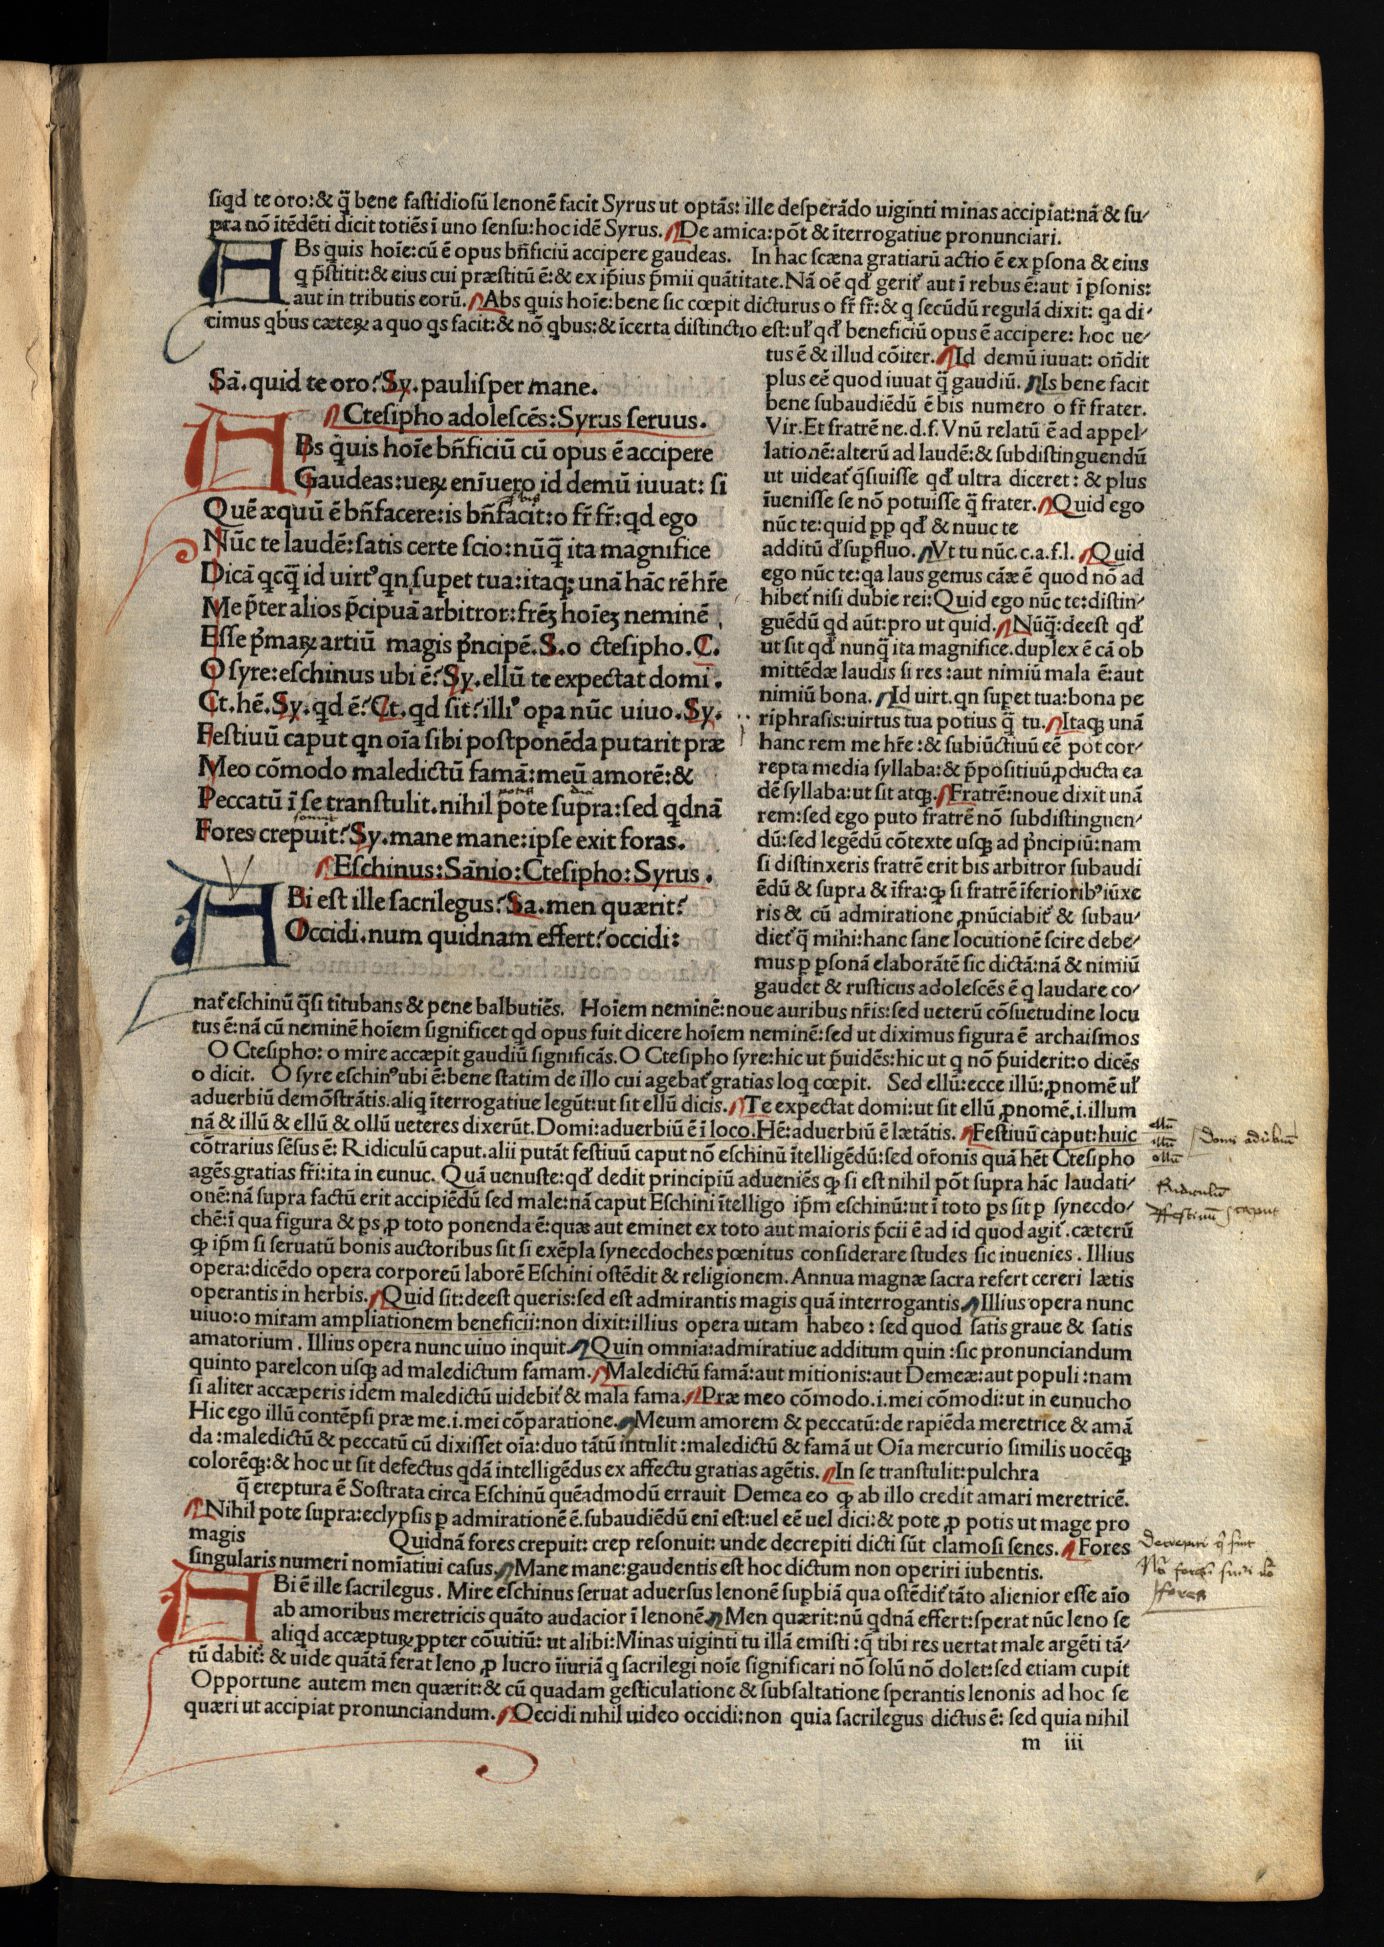 siqd te oro:& q̃ bene fastidiosũ lenonẽ facit Syrus ut optãs: ille desperãdo uiginti minas accipiat:nã & su/
pra nõ ĩtẽdẽti dicit totiẽs ĩ uno sensu:hoc idẽ Syrus. De amica:põt & ĩterrogatiue pronunciari.
ABs quis hoĩe:cũ ẽ opus bñficiũ accipere gaudeas. In hac scæna gratiarũ actio ẽ ex ꝑsona & eius
q p̃stitit:& eius cui præstitũ ẽ:& ex ip̃ius p̃mii quãtitate.Nã oẽ qđ gerit᷑ aut ĩ rebus ẽ:aut ĩ ꝑsonis:
aut in tributis eorũ. Abs quis hoĩe:bene sic cœpit dicturus o fr̃ fr̃:& q secũdũ regulã dixit: qa di/
cimus qbus cæteꝝ a quo qs facit:& nõ qbus:& ĩcerta distinctio est:uł qđ beneficiũ opus ẽ accipere: hoc ue/
tus ẽ & illud cõiter. Id demũ iuuat: oñdit
plus eẽ quod iuuat q̃ gaudiũ. Is bene facit
bene subaudiẽdũ ẽ bis numero o fr̃ frater.
Vir.Et fratrẽ ne.d.f.Vnũ relatũ ẽ ad appel/
lationẽ:alterũ ad laudẽ:& subdistinguendũ
ut uideat᷑ q̃siuisse qđ ultra diceret: & plus
ĩuenisse se nõ potuisse q̃ frater. Quid ego
nũc te:quid ꝑꝑ qđ & nuuc te
additũ đsuꝑfluo. Vt tu nũc.c.a.f.l. Quid
ego nũc te:qa laus genus cãæ ẽ quod nõ ad
hibet᷑ nisi dubie rei:Quid ego nũc te:distin/
guẽdũ qd aũt:pro ut quid. Nũq̃:deest qđ
ut sit qđ nunq̃ ita magnifice.duplex ẽ cã ob
mittẽdæ laudis si res:aut nimiũ mala ẽ:aut
nimiũ bona. Id uirt.qn suꝑet tua:bona pe
riphrasis:uirtus tua potius q̃ tu. Itaqꝫ unã
hanc rem me hr̃e:& subiũctiuũ eẽ pot cor/
repta media syllaba:& p̃positiuũ ꝓducta ea
dẽ syllaba:ut sit atqꝫ. Fratrẽ:noue dixit unã
rem:sed ego puto fratrẽ nõ subdistinguen/
dũ:sed legẽdũ cõtexte usqꝫ ad p̃ncipiũ:nam
si distinxeris fratrẽ erit bis arbitror subaudi
ẽdũ & supra & ĩfra:ꝙ si fratrẽ ĩferioribꝰ iũxe
ris & cũ admiratione ꝓnũciabit᷑ & subau/
diet᷑ q̃ mihi:hanc sane locutionẽ scire debe/
mus ꝑ ꝑsonã elaborãtẽ sic dictã:nã & nimiũ
gaudet & rusticus adolescẽs ẽ q laudare co/
Sã.quid te oro?Sy.paulisper mane.
Ctesipho adolescẽs:Syrus seruus.
ABs quis hoĩe bñficiũ cũ opus ẽ accipere
Gaudeas:ueꝝ enĩuero id demũ iuuat: si
Quẽ æquũ ẽ bñfacere:is bñfacit:o fr̃ fr̃:qd ego
Nũc te laudẽ:satis certe scio:nũq̃ ita magnifice
Dicã qcq̃ id uirtꝰ qn suꝑet tua:itaqꝫ unã hãc rẽ hr̃e
Me p̃ter alios p̃cipuã arbitror:frẽꝫ hoĩeꝫ neminẽ
Esse p̃maꝝ artiũ magis p̃ncipẽ.S.o ctesipho.C.
O syre:eschinus ubi ẽ?Sy.ellũ te expectat domi.
Ct.hẽ.Sy.qd ẽ?Ct.qd sit?illiꝰ oꝑa nũc uiuo.Sy.
Festiuũ caput qn oĩa sibi postponẽda putarit præ
Meo cõmodo maledictũ famã:meũ amorẽ:&
Peccatũ ĩ se transtulit.nihil pote supra:sed qdnã
Fores crepuit?Sy.mane mane:ipse exit foras.
Eschinus:Sãnio:Ctesipho:Syrus.
ABi est ille sacrilegus?Sa.men quærit?
Occidi.num quidnam effert?occidi:
nat᷑ eschinũ q̃si titubans & pene balbutiẽs. Hoĩem neminẽ:noue auribus nr̃is:sed ueterũ cõsuetudine locu
tus ẽ:nã cũ neminẽ hoĩem significet qd opus fuit dicere hoĩem neminẽ:sed ut diximus figura ẽ archaismos
O Ctesipho: o mire accæpit gaudiũ significãs.O Ctesipho syre:hic ut p̃uidẽs:hic ut q nõ p̃uiderit:o dicẽs
o dicit. O syre eschinꝰ ubi ẽ:bene statim de illo cui agebat᷑ gratias loq cœpit. Sed ellũ:ecce illũ:ꝓnomẽ uł
aduerbiũ demõstrãtis.aliq ĩterrogatiue legũt:ut sit ellũ dicis. Te expectat domi:ut sit ellũ ꝓnomẽ.i.illum
nã & illũ & ellũ & ollũ ueteres dixerũt.Domi:aduerbiũ ẽ ĩ loco.Hẽ:aduerbiũ ẽ lætãtis. Festiuũ caput:huic
cõtrarius sẽsus ẽ: Ridiculũ caput.alii putãt festiuũ caput nõ eschinũ ĩtelligẽdũ:sed or̃onis quã hẽt Ctesipho
agẽs gratias fr̃i:ita in eunuc. Quã uenuste:qđ dedit principiũ adueniẽs ꝙ si est nihil põt supra hãc laudati/
onẽ:nã supra factũ erit accipiẽdũ sed male:nã caput Eschini ĩtelligo ip̃m eschinũ:ut ĩ toto ꝑs sit ꝑ synecdo/
chẽ:ĩ qua figura & ꝑs ꝓ toto ponenda ẽ:quæ aut eminet ex toto aut maioris p̃cii ẽ ad id quod agit᷑.cæterũ
ꝙ ip̃m si seruatũ bonis auctoribus sit si exẽpla synecdoches pœnitus considerare studes sic inuenies. Illius
opera:dicẽdo opera corporeũ laborẽ Eschini ostẽdit & religionem.Annua magnæ sacra refert cereri lætis
operantis in herbis. Quid sit:deest queris:sed est admirantis magis quã interrogantis Illius opera nunc
uiuo:o miram ampliationem beneficii:non dixit:illius opera uitam habeo: sed quod satis graue & satis
amatorium. Illius opera nunc uiuo inquit. Quin omnia:admiratiue additum quin:sic pronunciandum
quinto parelcon usqꝫ ad maledictum famam. Maledictũ famã:aut mitionis:aut Demeæ:aut populi:nam
si aliter accæperis idem maledictũ uidebit᷑ & mala fama. Præ meo cõmodo.i.mei cõmodi:ut in eunucho
Hic ego illũ contẽpsi præ me.i.mei cõparatione. Meum amorem & peccatũ:de rapiẽda meretrice & amã
da:maledictũ & peccatũ cũ dixisset oĩa:duo tãtũ intulit:maledictũ & famã ut Oĩa mercurio similis uocẽqꝫ
colorẽqꝫ:& hoc ut sit defectus qdã intelligẽdus ex affectu gratias agẽtis. In se transtulit:pulchra
q̃ ereptura ẽ Sostrata circa Eschinũ quẽadmodũ errauit Demea eo ꝙ ab illo credit amari meretricẽ.
Nihil pote supra:eclypsis ꝑ admirationẽ ẽ.subaudiẽdũ enĩ est:uel eẽ uel dici:& pote ꝓ potis ut mage pro
magis Quidnã fores crepuit: crep resonuit: unde decrepiti dicti sũt clamosi senes. Fores
singularis numeri nomĩatiui casus. Mane mane:gaudentis est hoc dictum non operiri iubentis.
ABi ẽ ille sacrilegus. Mire eschinus seruat aduersus lenonẽ suꝑbiã qua ostẽdit᷑ tãto alienior esse aĩo
ab amoribus meretricis quãto audacior ĩ lenonẽ Men quærit:nũ qdnã effert:sperat nũc leno se
aliqd accæptuꝝ ꝓpter cõuitiũ: ut alibi:Minas uiginti tu illã emisti:q̃ tibi res uertat male argẽti tã/
tũ dabit᷑: & uide quãtã ferat leno ꝓ lucro ĩiuriã q sacrilegi noĩe significari nõ solũ nõ dolet:sed etiam cupit
Opportune autem men quærit:& cũ quadam gesticulatione & subsaltatione sperantis lenonis ad hoc se
quæri ut accipiat pronunciandum. Occidi nihil uideo occidi:non quia sacrilegus dictus ẽ: sed quia nihil
m iii
ellũ
illũ
ollũ
Domi aduerbiũ
Ridiculũ
Festiuũ caput
Decrepiti
fores